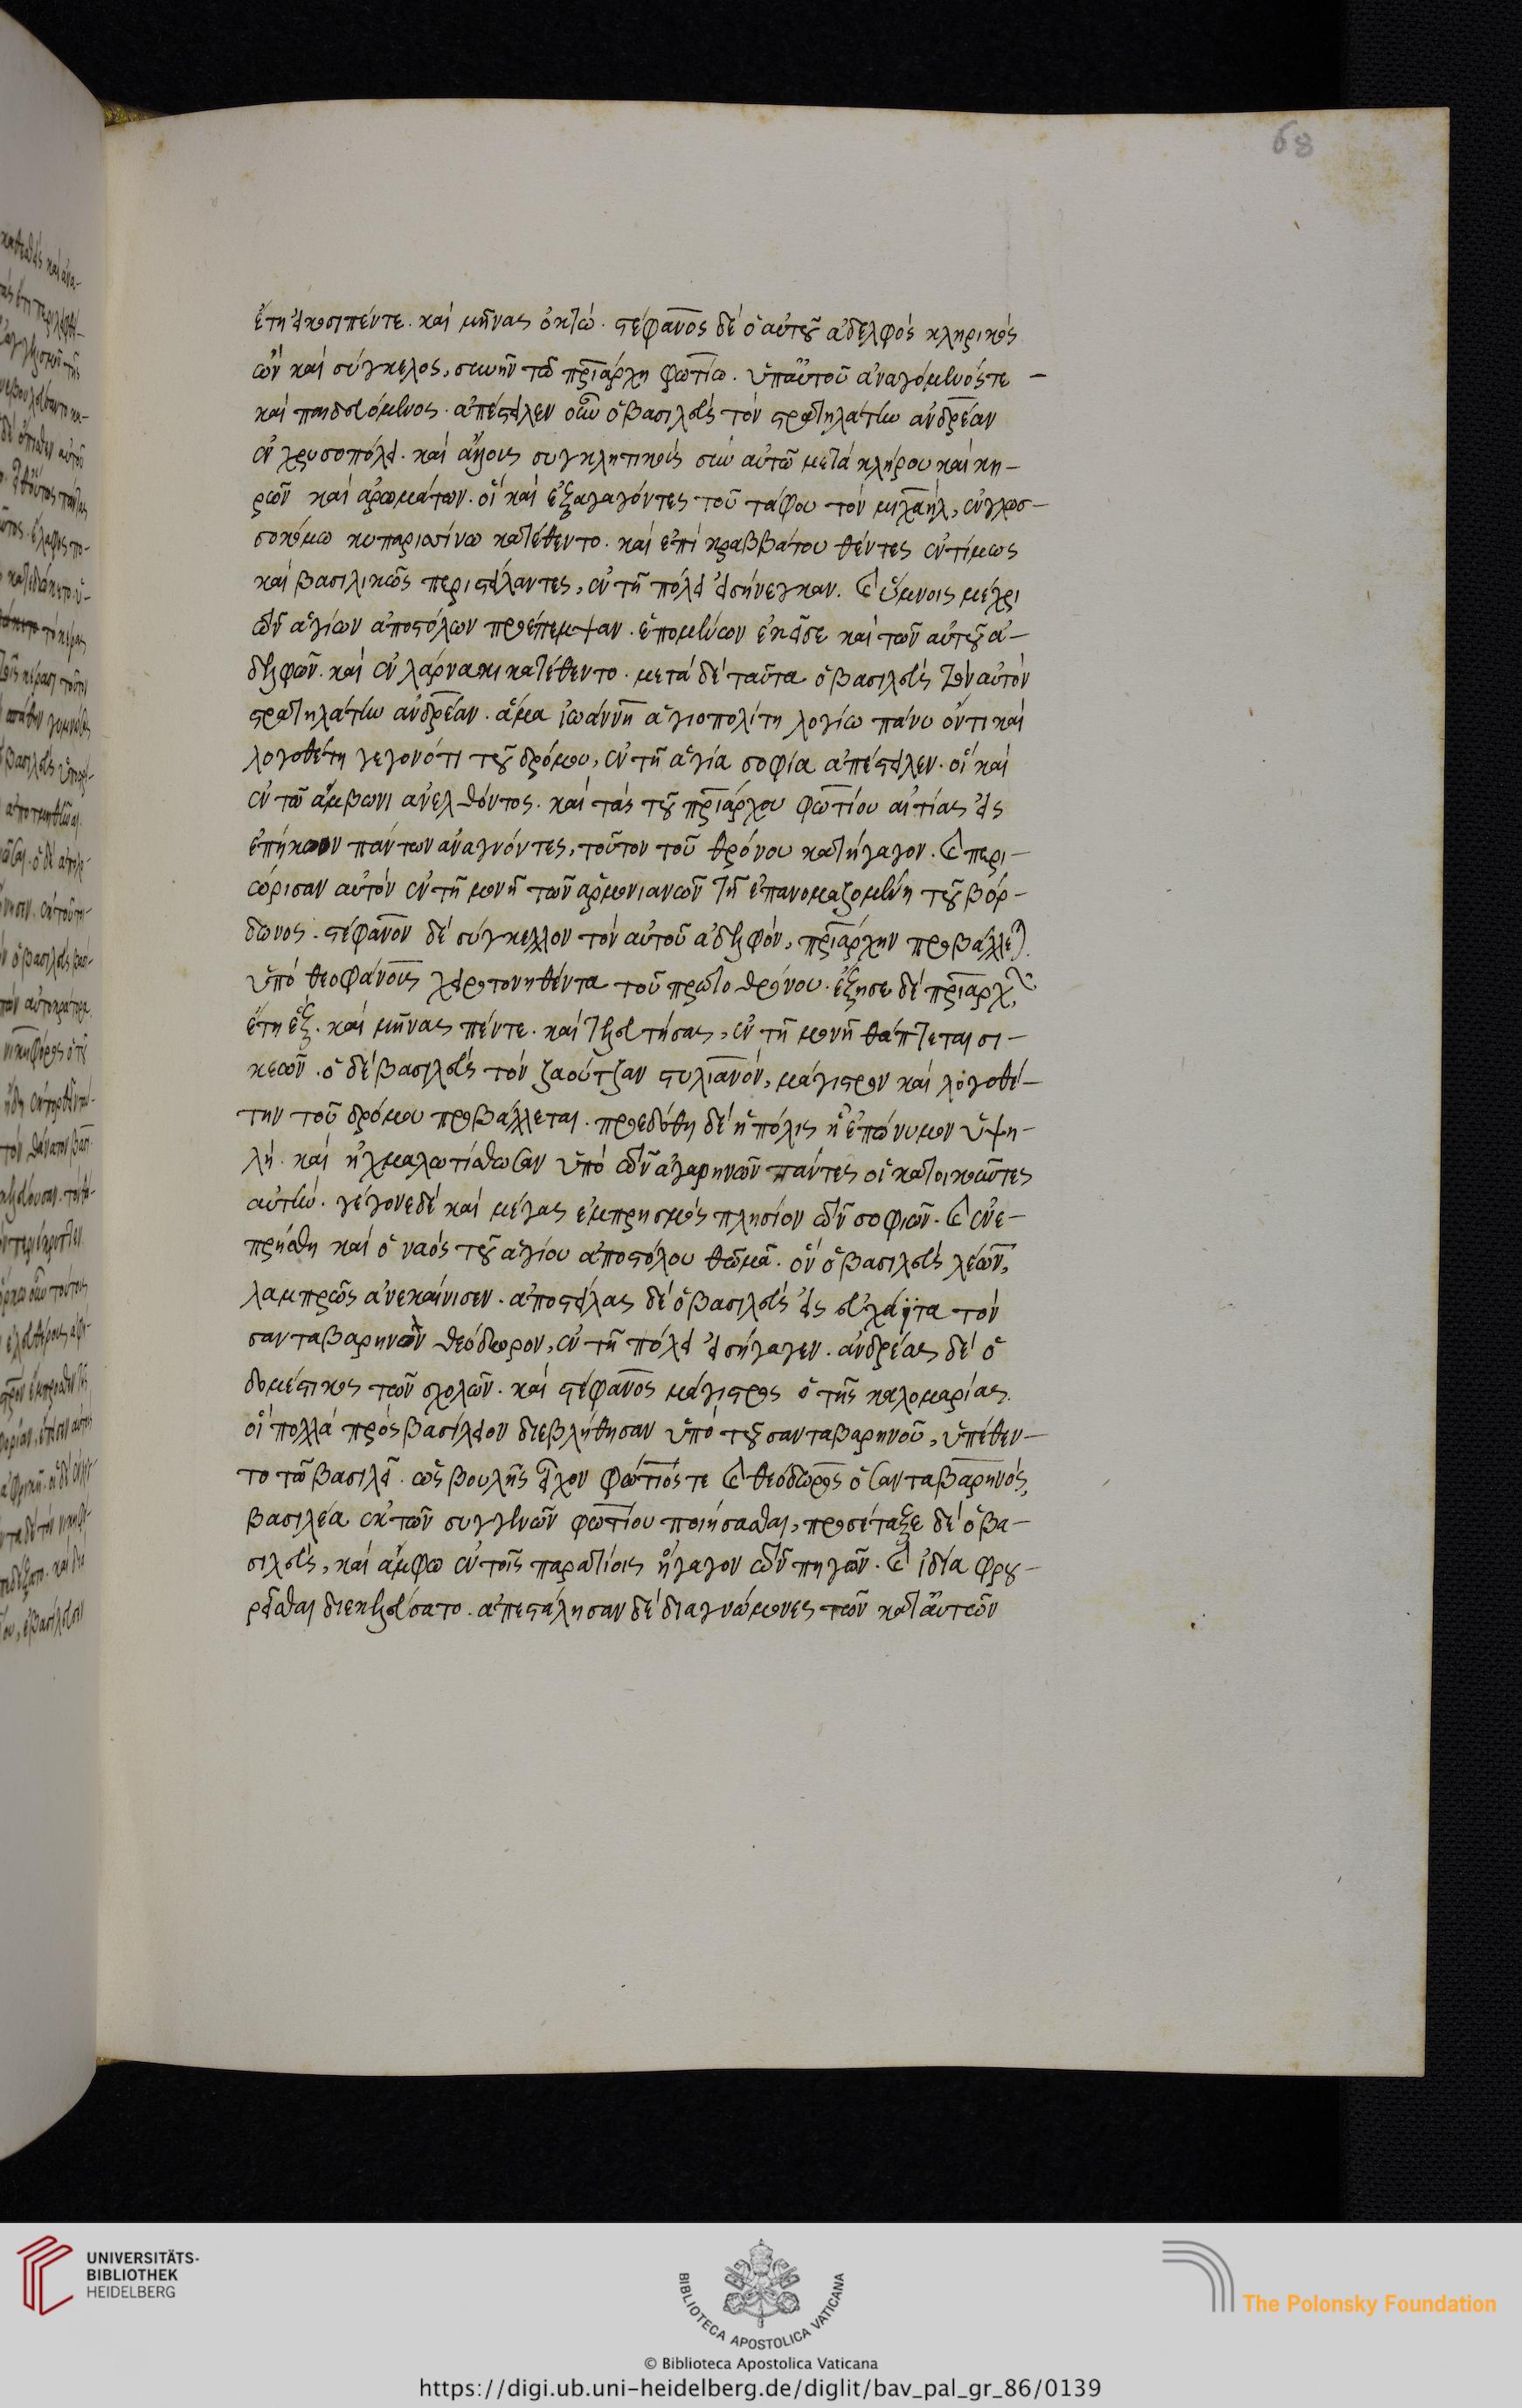 68
ἔτη εἰκοσιπέντε. καὶ μῆνας ὀκτώ. στέφανος δὲ ὁ αὐτοῦ ἀδελφὸς κληρικός
ὢν καὶ σύγκελος, συνῆν τῶ πατριάρχη φωτίω. ὑπ αὐτοῦ ἀναγόμενός τε
καὶ παιδευόμενος. ἀπέστειλεν οὖν ὁ βασιλεὺς τὸν στρατηλάτην ἀνδρέαν
ἐν χρυσοπόλει. καὶ ἄλλοις συγκλητικοῖς σὺν αὐτῶ μετὰ κλήρου καὶ κη-
ρῶν καὶ ἀρωμάτων. οἳ καὶ ἐξαγαγόντες τοῦ τάφου τὸν μιχαήλ, ἐν γλωσ-
σοκόμω κυπαρισσίνω κατέθεντο. καὶ ἐπὶ κραββάτου θέντες ἐντίμως
καὶ βασιλικῶς περιστείλαντες, ἐν τῆ πόλει εἰσήνεγκαν. καὶ ὕμνοις μέχρι
τῶν ἁγίων ἀποστόλων προέπεμψαν. ἑπομένων ἐκεῖσε καὶ τῶν αὐτοῦ ἀ-
δελφῶν. καὶ ἐν λάρνακι κατέθεντο. μετὰ δὲ ταῦτα ὁ βασιλεὺς τὸν αὐτὸν
στρατηλάτην ἀνδρέαν. ἅμα ἰωάννη ἁγιοπολίτη λογίω πάνυ ὄντι καὶ
λογοθέτη γεγονότι τοῦ δρόμου, ἐν τῆ ἁγία σοφία ἀπέστειλεν. οἳ καὶ
ἐν τῶ ἄμβωνι ἀνελθόντος. καὶ τὰς τοῦ πατριάρχου φωτίου αἰτίας εἰς
ἐπήκοον πάντων ἀναγνόντες, τοῦτον τοῦ θρόνου κατήγαγον. καὶ περι-
ώρισαν αὐτὸν ἐν τῆ μονῆ τῶν ἀρμονιανῶν τῆ ἐπανομαζομένη τοῦ βόρ-
δωνος. στέφανον δὲ σύγκελλον τὸν αὐτοῦ ἀδελφόν, πατριάρχην προβάλλεται.
ὑπὸ θεοφάνους χειροτονηθέντα τοῦ πρωτοθρόνου. ἔζησε δὲ πατριάρχης
ἔτη ἕξ. καὶ μῆνας πέντε. καὶ τελευτήσας, ἐν τῆ μονῆ θάπτεται σι-
κεῶν. ὁ δὲ βασιλεὺς τὸν ζαούτζαν στυλιανόν, μάγιστρον καὶ λογοθέ-
την τοῦ δρόμου προβάλλεται. προεδόθη δὲ ἡ πόλις ἡ ἐπώνυμον ὑψη-
λή. καὶ ἠχμαλωτίσθωσαν ὑπὸ τῶν ἀγαρηνῶν πάντες οἱ κατοικοῦντες
αὐτήν. γέγονε δὲ καὶ μέγας ἐμπρησμὸς πλησίον τῶν σοφιῶν. καὶ ἐνε-
πρήσθη καὶ ὁ ναὸς τοῦ ἁγίου ἀποστόλου θωμᾶ. ὃν ὁ βασιλεὺς λέων,
λαμπρῶς ἀνεκαίνισεν. ἀποστείλας δὲ ὁ βασιλεὺς εἰς εὐχάϊτα τὸν
σανταβαρηνὸν θεόδωρον, ἐν τῆ πόλει εἰσήγαγεν. ἀνδρέας δὲ ὁ
δομέστικος τῶν σχολῶν. καὶ στέφανος μάγιστρος ὁ τῆς καλομαρίας.
οἳ πολλὰ πρὸς βασίλειον διεβλήθησαν ὑπὸ τοῦ σανταβαρηνοῦ, ὑπέθεν-
το τῶ βασιλεῖ. ὡς βουλῆς εἶχον φώτιός τε καὶ θεόδωρος ὁ σανταβαρηνός,
βασιλέα ἐκ τῶν συγγενῶν φωτίου ποιήσασθαι, προσέταξε δὲ ὁ βα-
σιλεύς, καὶ ἄμφω ἐν τοῖς παλατίοις ἤγαγον τῶν πηγῶν. καὶ ἰδία φρου-
ρεῖσθαι διεκελεύσατο. ἀπεστάλησαν δὲ διαγνώμονες τῶν κατ αὐτῶν
UNIVERSITÄTS-
BIBLIOTHEK
HEIDELBERG
BIBLIOTECA APOSTOLICA VATICANA
The Polonsky Foundation
© Biblioteca Apostolica Vaticana
https://digi.ub.uni-heidelberg.de/diglit/bav_pal_gr_86/0139